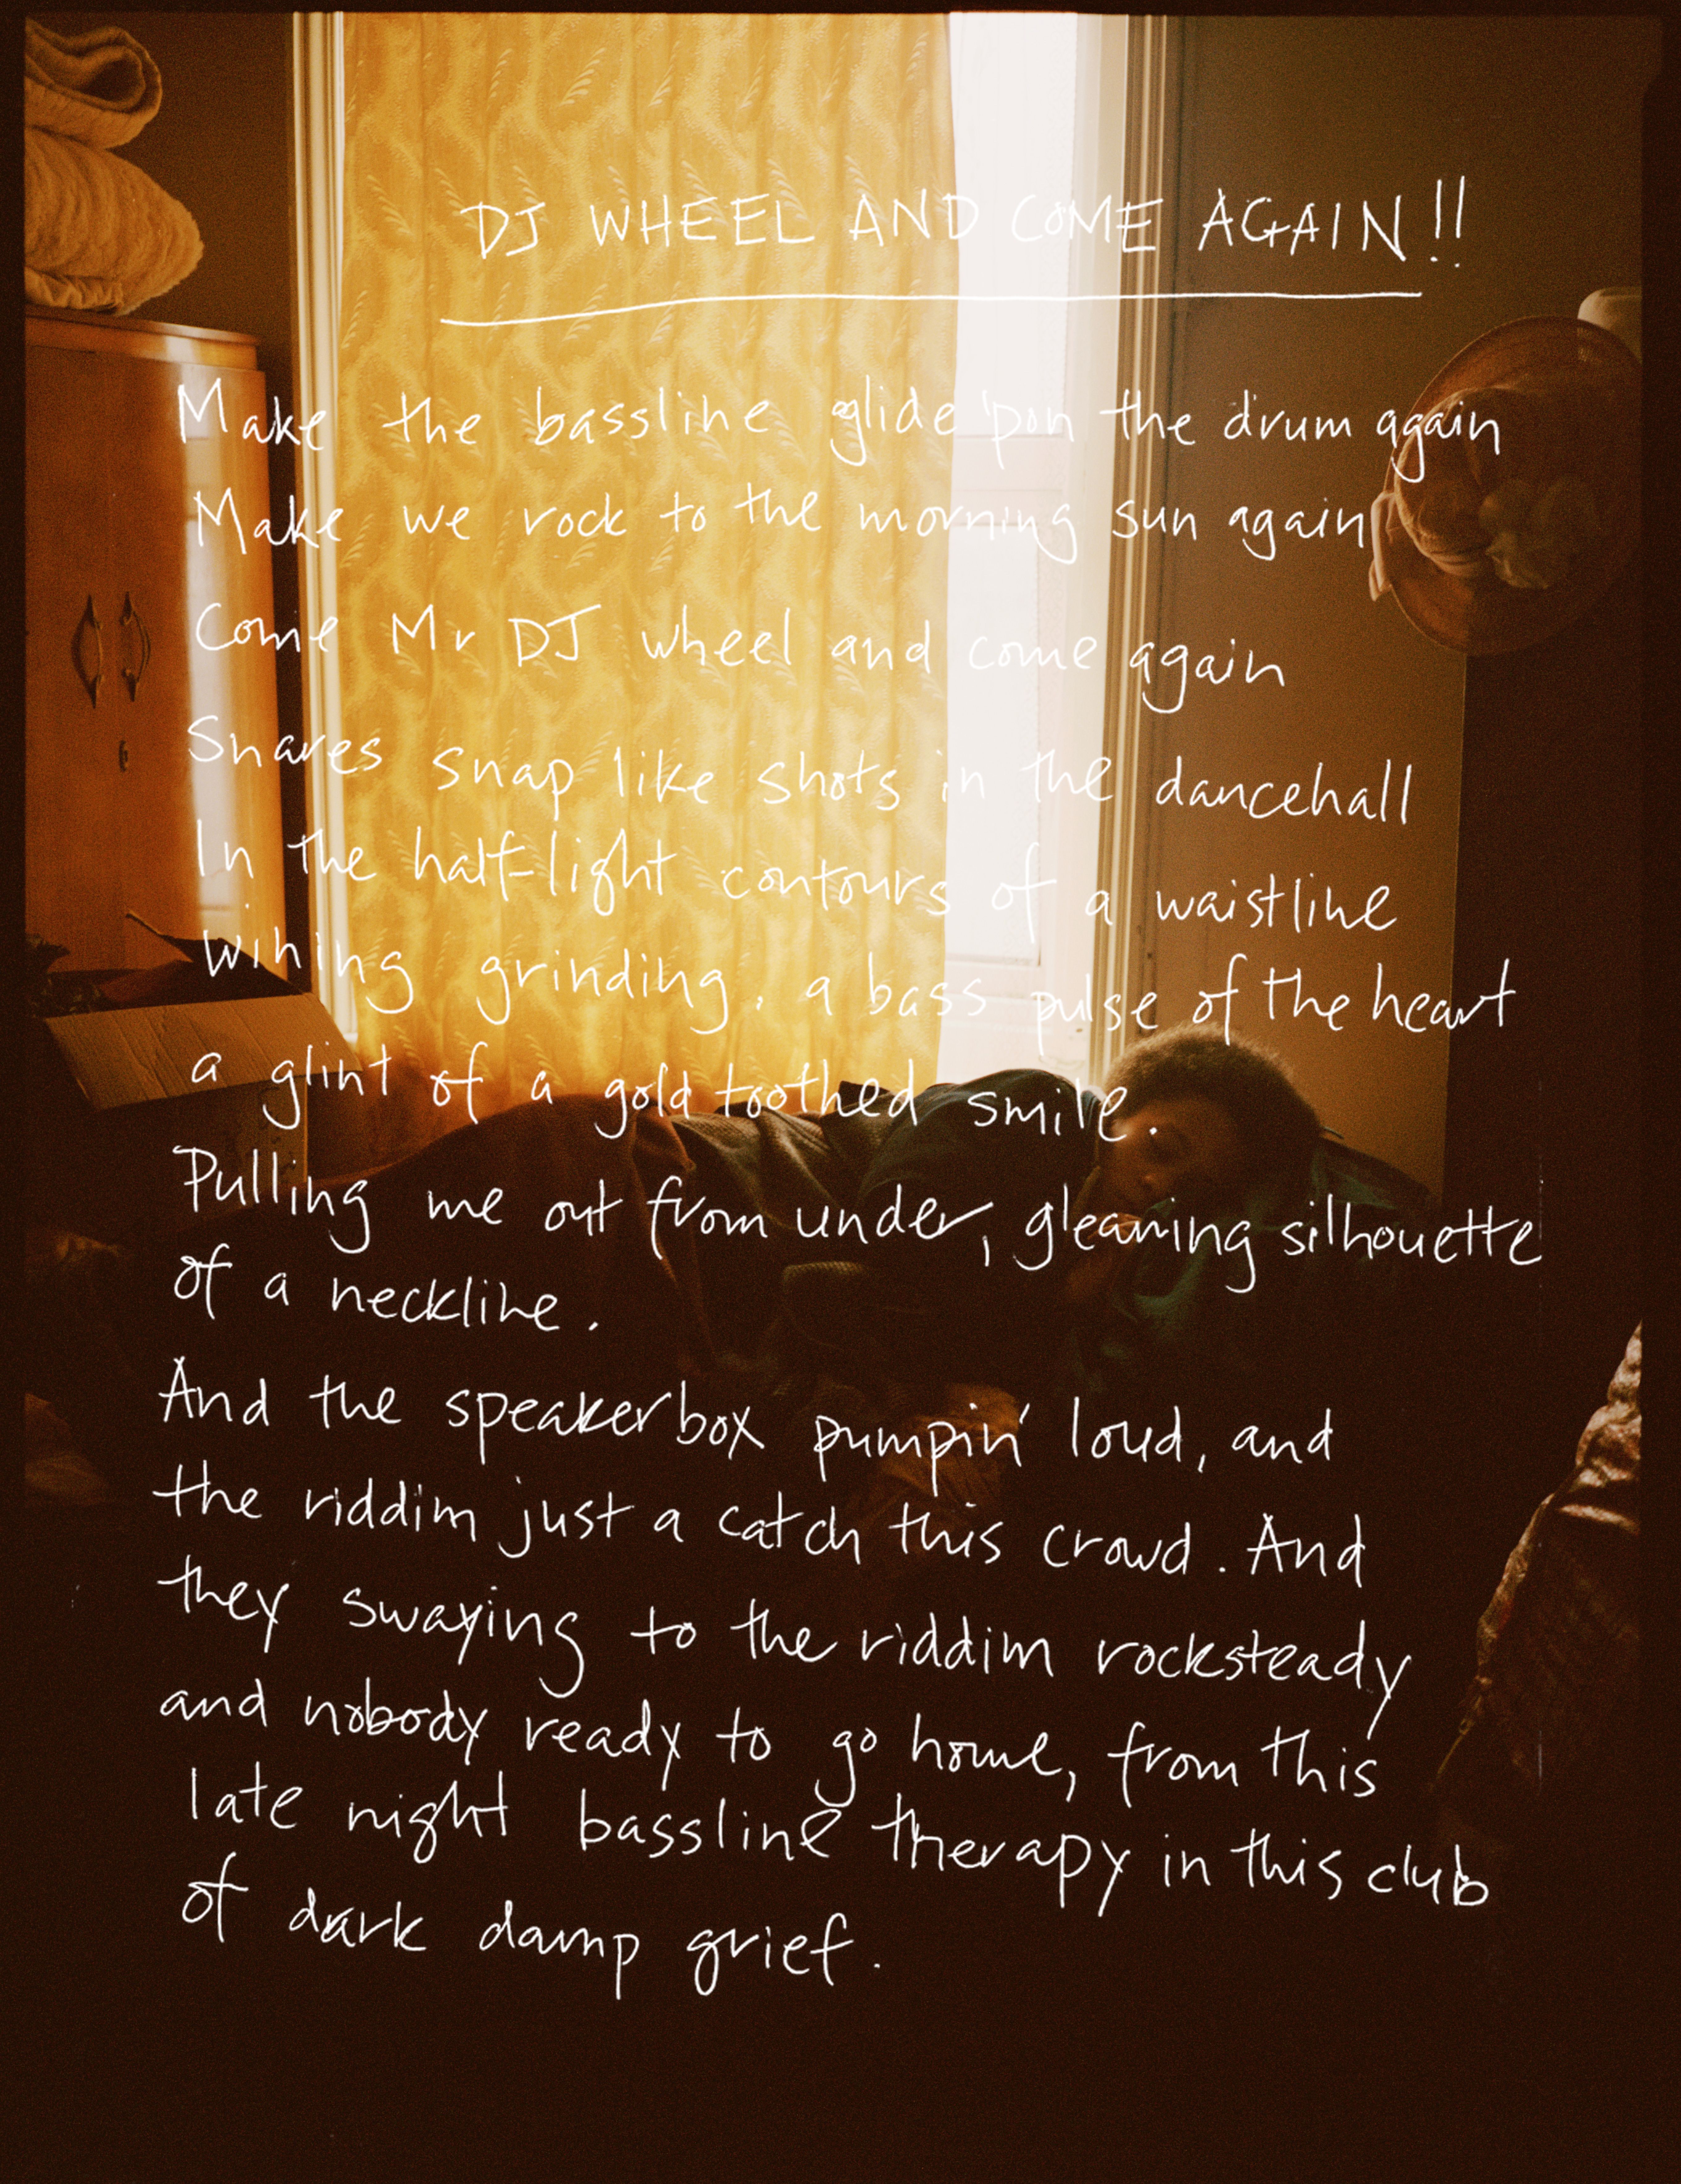 DJ WHEEL AND COME AGAIN!!
Make the bassline glide 'pon the drum again
Make we rock to the morning sun again
Come Mr DJ wheel and come again
Snares snap like shots in the dancehall
In the half-light contours of a waistline
wining grinding, a bass pulse of the heart
a glint of a gold toothed smile.
Pulling me out from under, gleaming silhouette
of a neckline.
And the speakerbox pumpin' loud, and
the riddim just a catch this crowd. And
they swaying to the riddim rocksteady
and nobody ready to go home, from this
late night bassline therapy in this club
of dark damp grief.